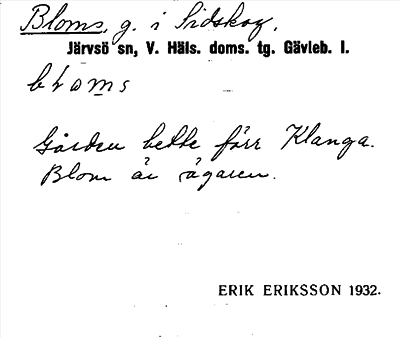 Bloms, g. i Sidskog.
Järvsö sn, V. Häls. doms. tg. Gävleb. l.
bɫωms
Gården hette förr Klanga.
Blom är ägaren.
ERIK ERIKSSON 1932.